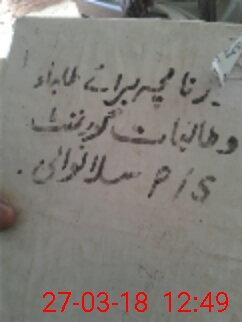 برائے طلباء
و طالبات گورنمنٹ
P/S سلانوالی
27-03-18 12:49